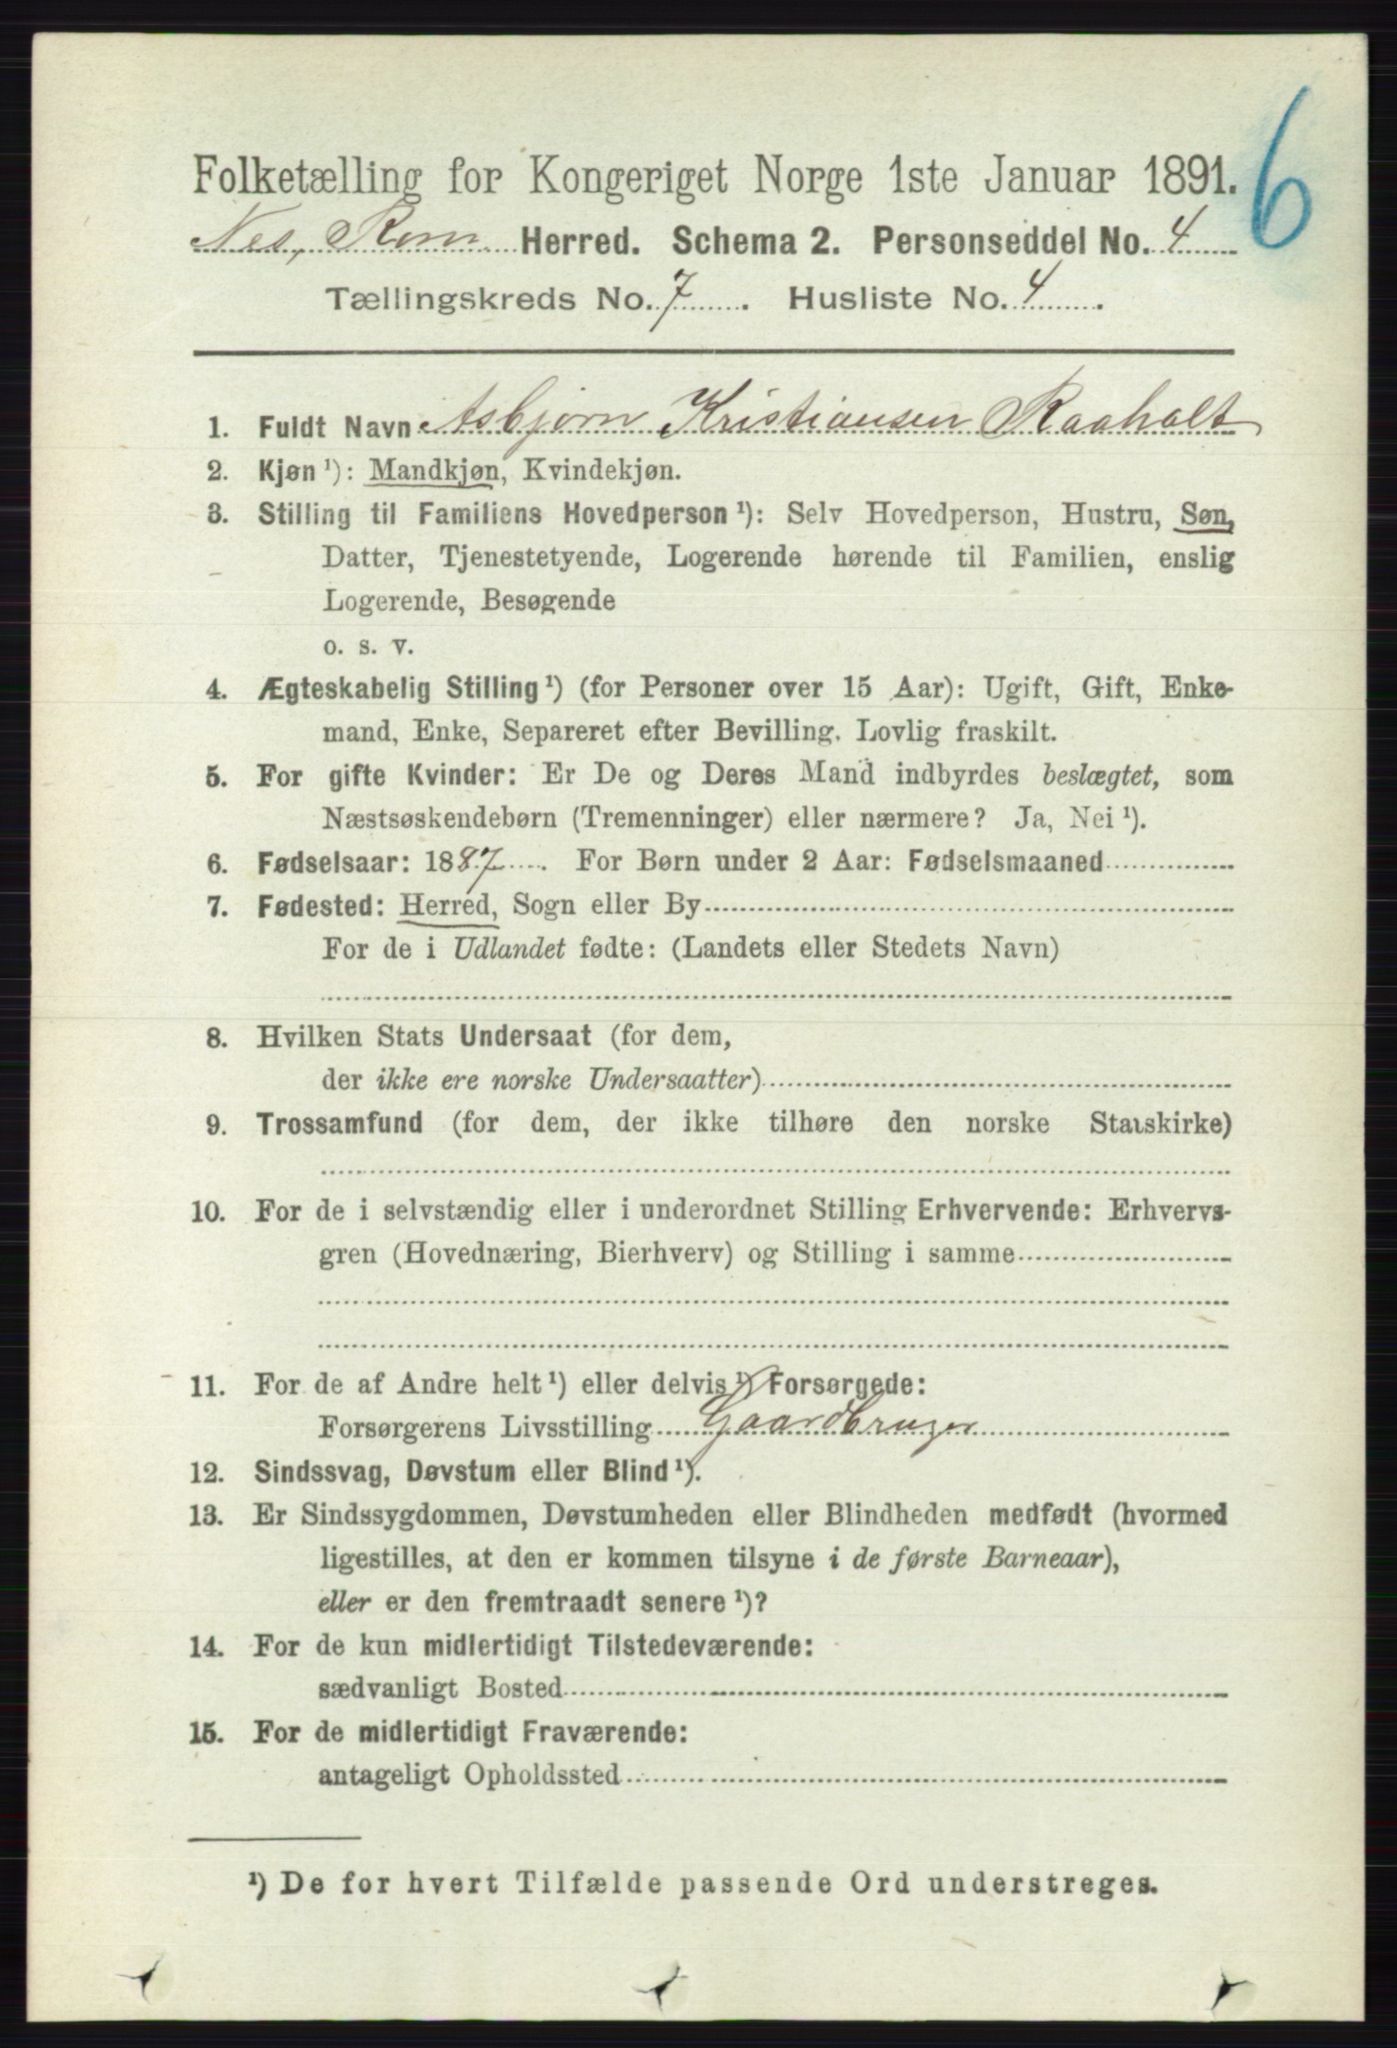 6
Folketælling for Kongeriget Norge 1ste Januar 1891.
Nes, Rom. Herred. Schema 2. Personseddel No. 4
Tællingskreds No. 7. Husliste No. 4.
1. Fuldt Navn Asbjørn Kristiansen Raaholt
2. Kjøn ¹): Mandkjøn, Kvindekjøn.
3. Stilling til Familiens Hovedperson ¹): Selv Hovedperson, Hustru, Søn,
Datter, Tjenestetyende, Logerende hørende til Familien, enslig
Logerende, Besøgende
o. s. v.
4. Ægteskabelig Stilling ¹) (for Personer over 15 Aar): Ugift, Gift, Enke-
mand, Enke, Separeret efter Bevilling. Lovlig fraskilt.
5. For gifte Kvinder: Er De og Deres Mand indbyrdes beslægtet, som
Næstsøskendebørn (Tremenninger) eller nærmere? Ja, Nei ¹).
6. Fødselsaar: 1887. For Børn under 2 Aar: Fødselsmaaned
7. Fødested: Herred, Sogn eller By
For de i Udlandet fødte: (Landets eller Stedets Navn)
8. Hvilken Stats Undersaat (for dem,
der ikke ere norske Undersaatter)
9. Trossamfund (for dem, der ikke tilhøre den norske Statskirke)
10. For de i selvstændig eller i underordnet Stilling Erhvervende: Erhvervs-
gren (Hovednæring, Bierhverv) og Stilling i samme
11. For de af Andre helt ¹) eller delvis ¹) Forsørgede:
Forsørgerens Livsstilling Gaardbruger
12. Sindssvag, Døvstum eller Blind ¹).
13. Er Sindssygdommen, Døvstumheden eller Blindheden medfødt (hvormed
ligestilles, at den er kommen tilsyne i de første Barneaar),
eller er den fremtraadt senere ¹)?
14. For de kun midlertidigt Tilstedeværende:
sædvanligt Bosted
15. For de midlertidigt Fraværende:
antageligt Opholdssted
¹) De for hvert Tilfælde passende Ord understreges.